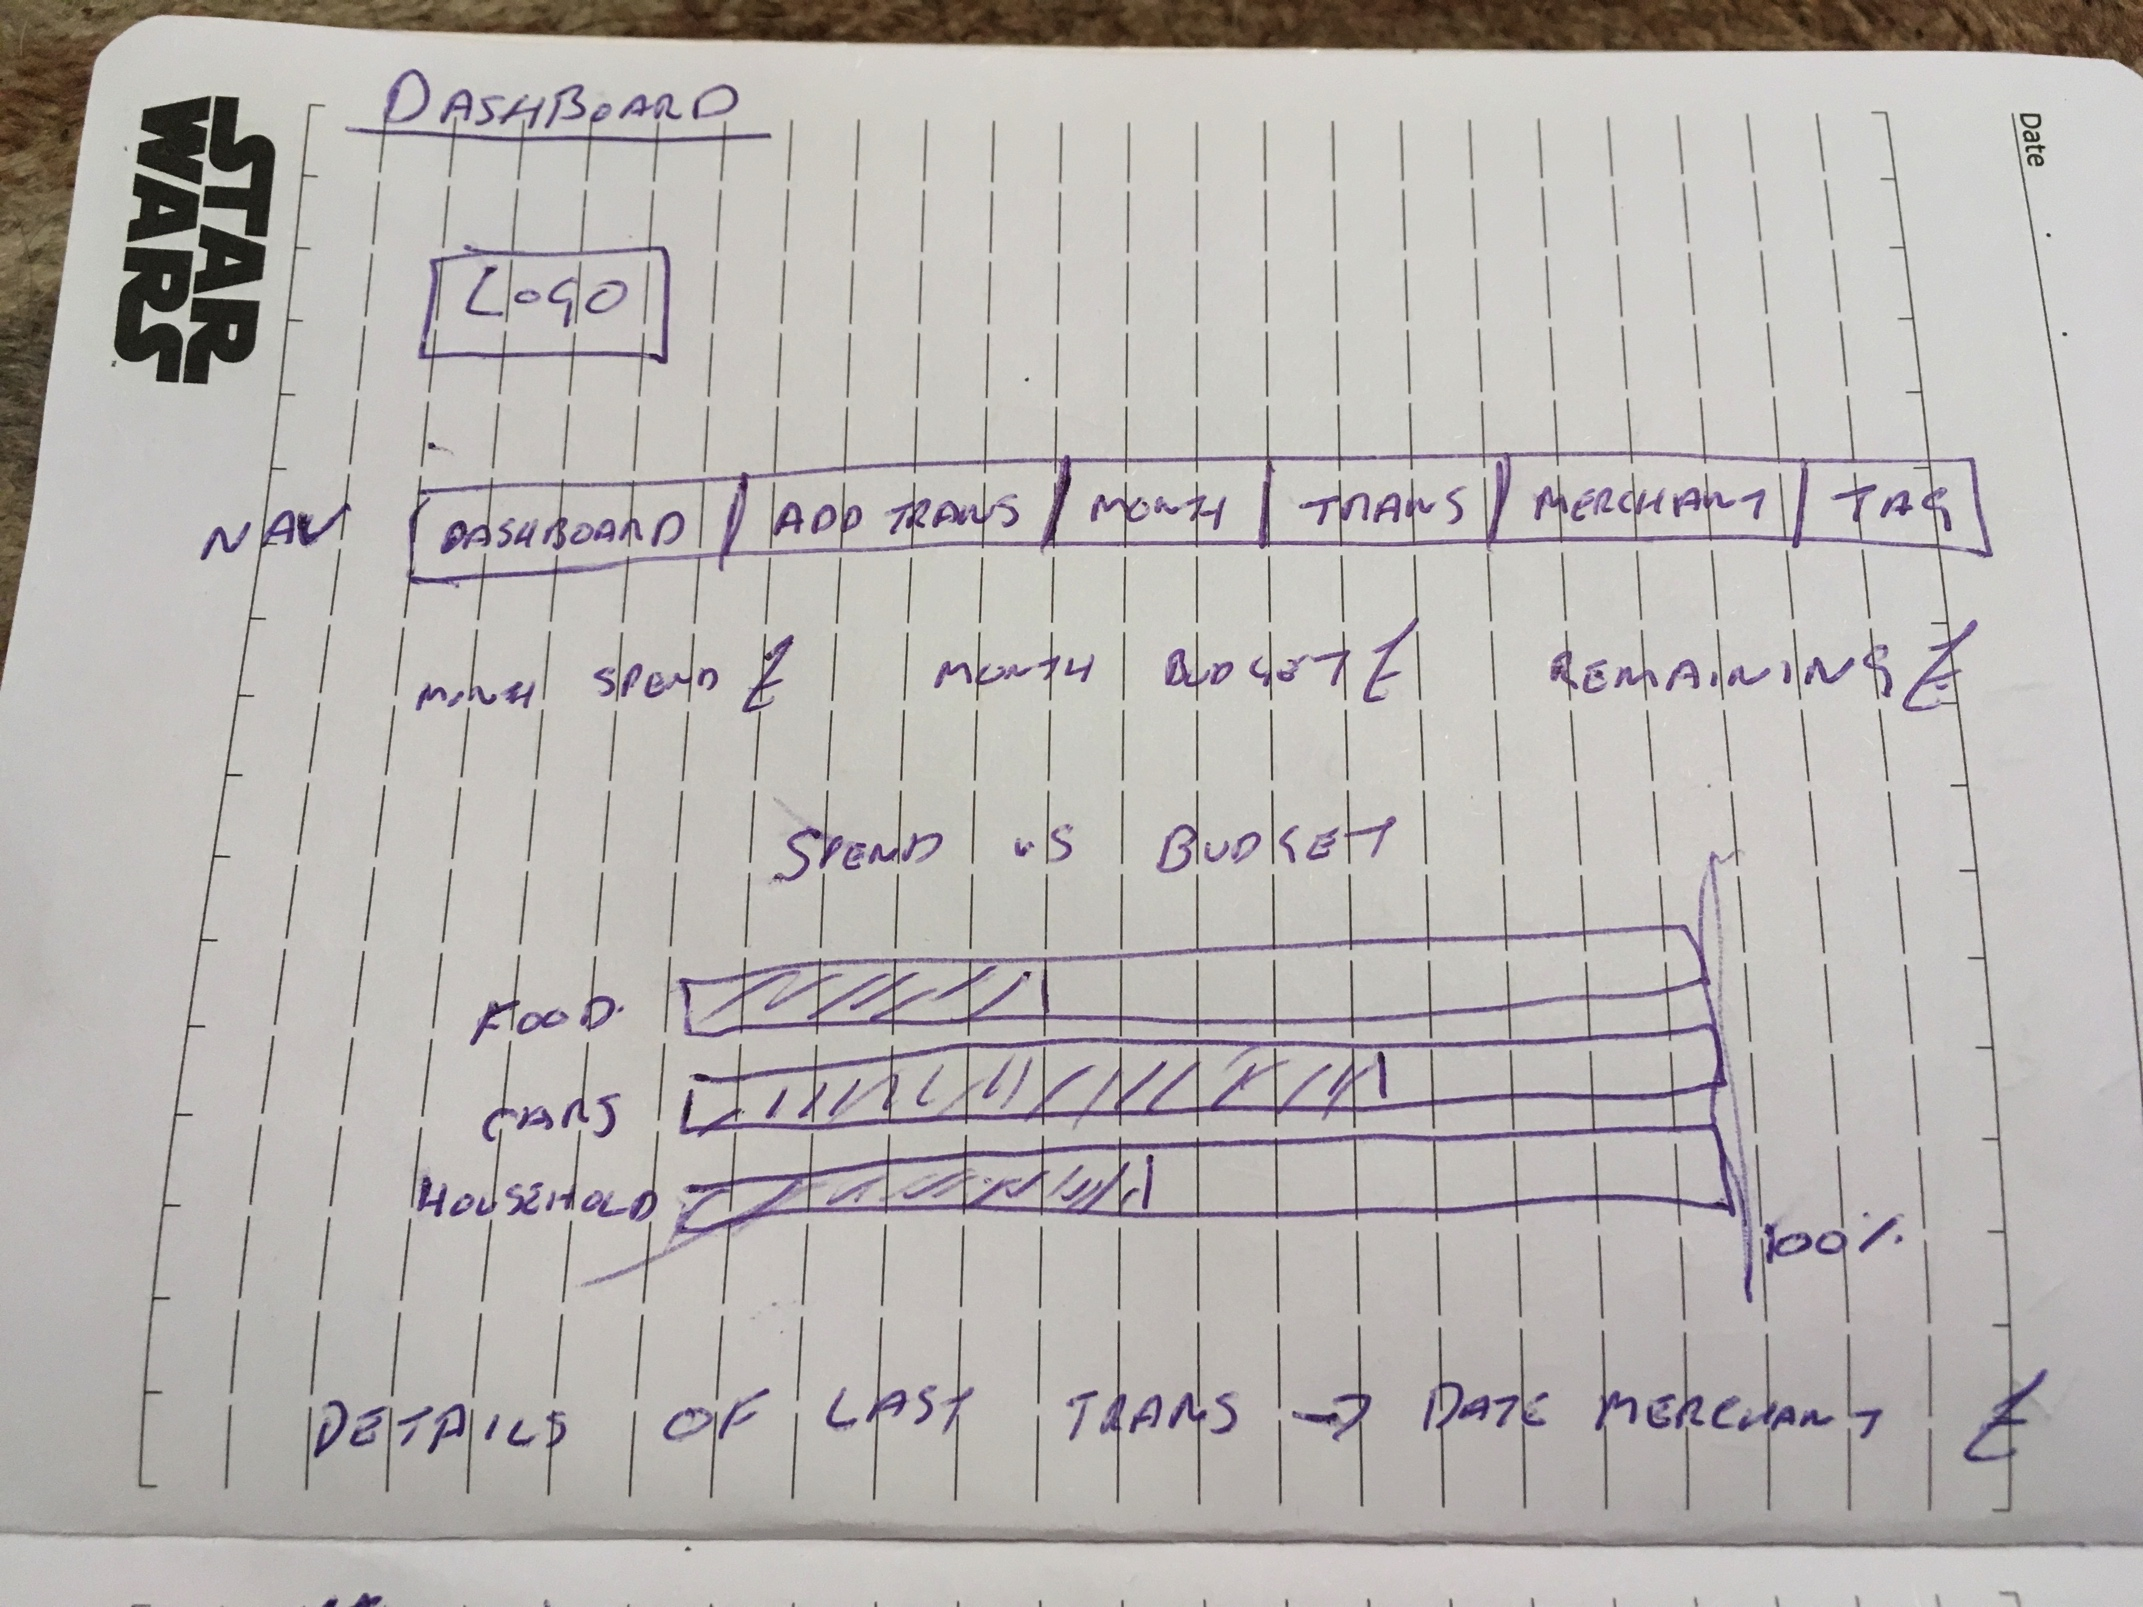 DASHBOARD
STAR
WARS
Date
LOGO
NAV DASHBOARD ADD TRANS MONTH TRANS MERCHANT TAG
MONTH SPEND £ MONTH BUDGET £ REMAINING £
SPEND VS BUDGET
FOOD
CARS
HOUSEHOLD
100%
DETAILS OF LAST TRANS → DATE MERCHANT £